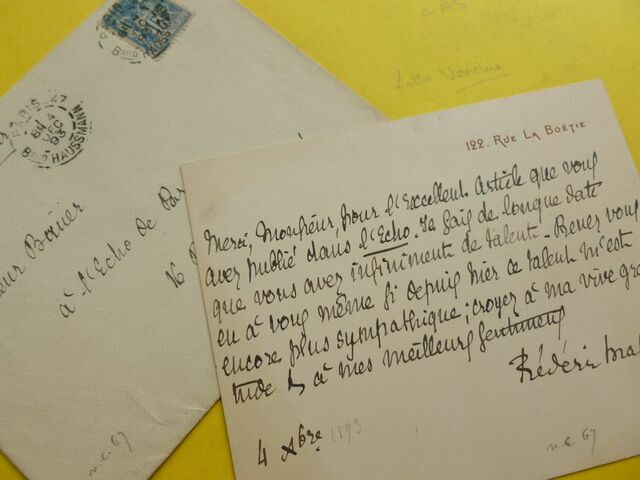 LAS
PARIS 47
4
DEC
93
HAUSSMANN
PARIS
HAUSSMANN
eur Bauër
à l'Echo de Par
16
n.c. 67
122. RUE LA BOËTIE
Merci, Monsieur, pour l'Excellent article que vous
avez publié dans l'Echo. Je sais de longue date
que vous avez infiniment de talent. Prenez vous
en à vous même si depuis hier ce talent m'est
encore plus sympathique; croyez à ma vive gra
tude & à mes meilleurs sentiments
Frédéric
4 Xbre 1893
n.c. 67